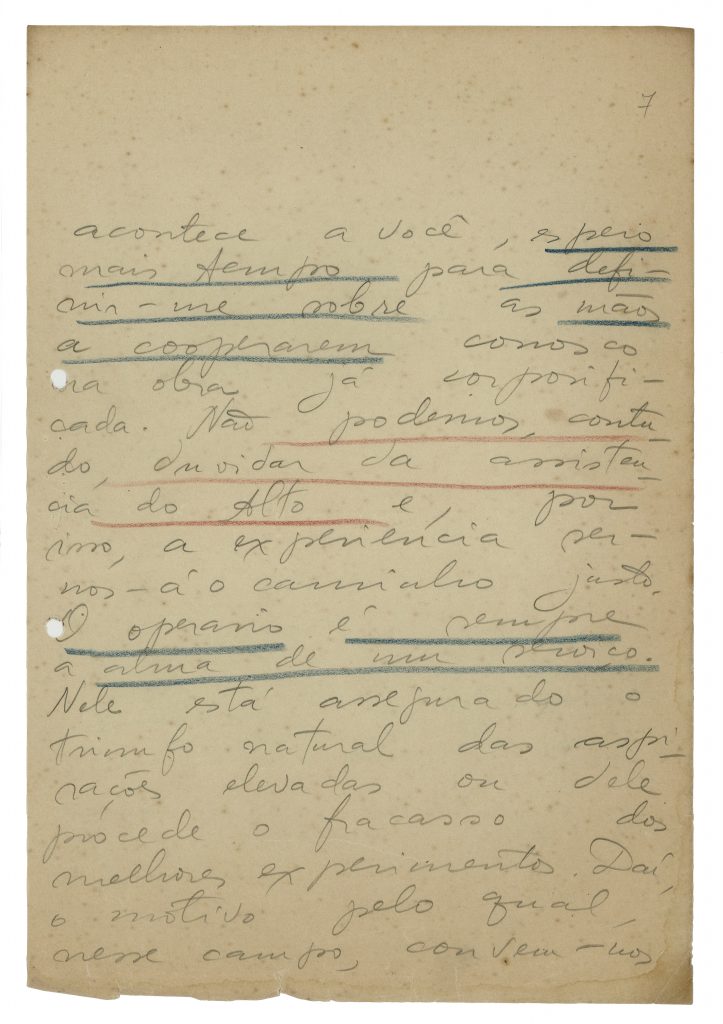 7
acontece a você, espero
mais tempo para defi-
nir-me sobre as mãos
a cooperarem conosco
na obra já corporifi-
cada. Não podemos, contu-
do, duvidar da assistên-
cia do Alto e, por
isso, a experiência ser-
nos-á o caminho justo.
O operario é sempre
a alma de um serviço.
Nele está assegurado o
triunfo natural das aspi-
rações elevadas ou dele
procede o fracasso dos
melhores experimentos. Daí,
o motivo pelo qual,
nesse campo, convem-nos